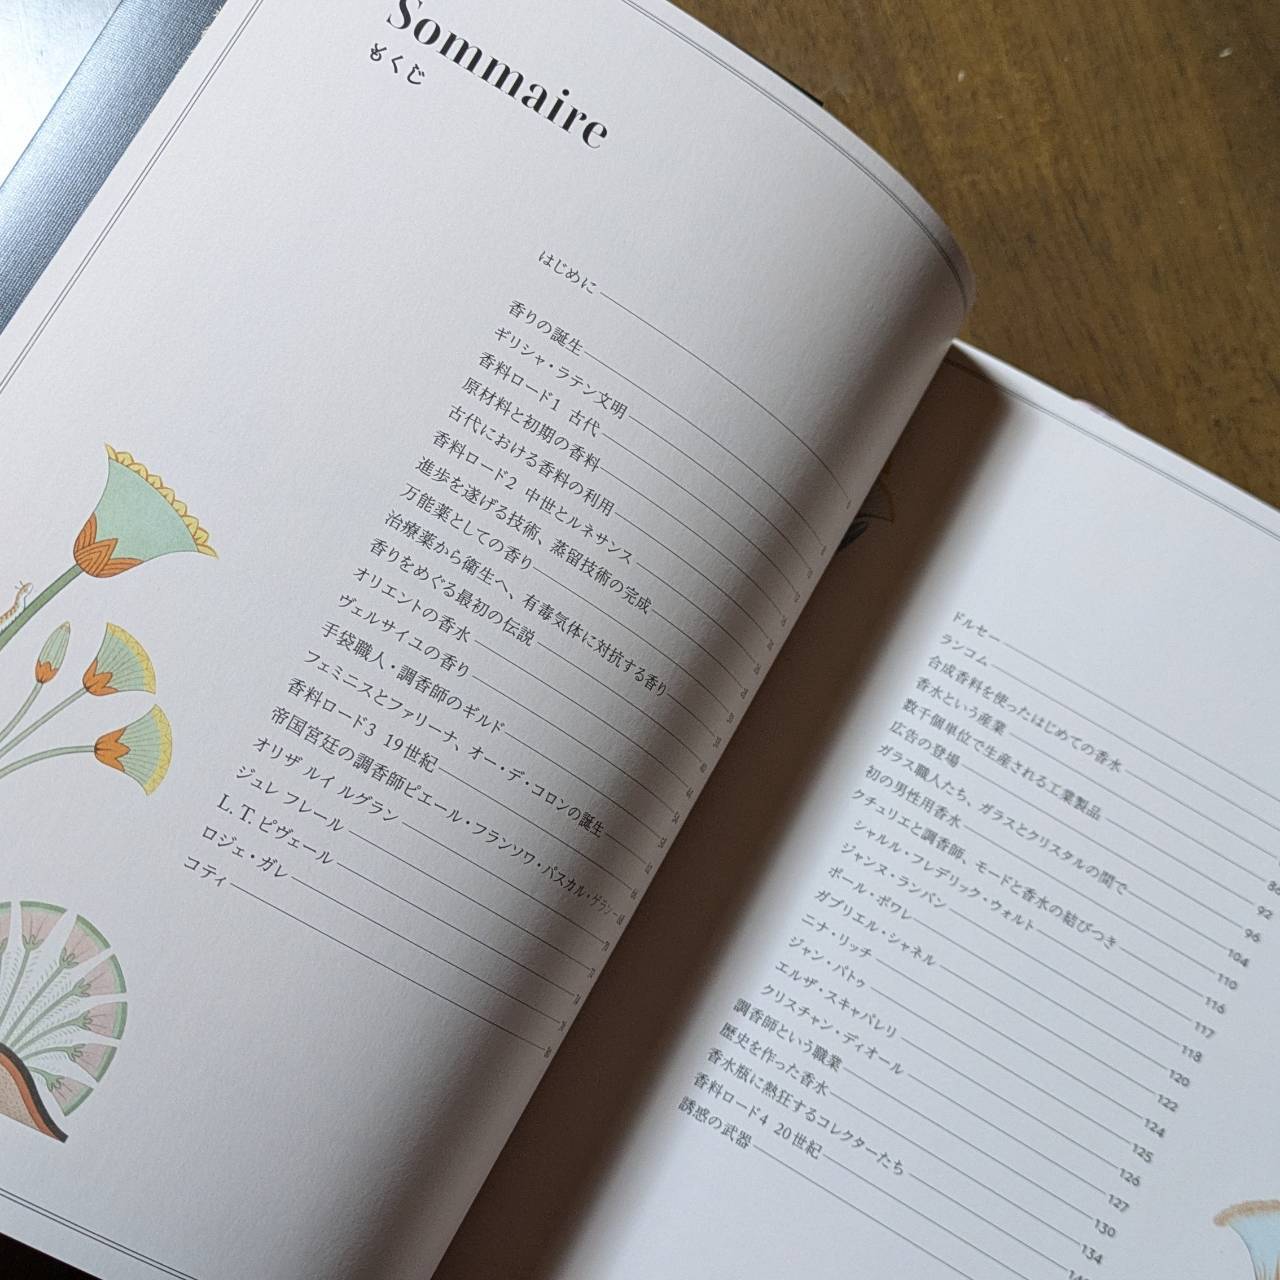 Sommaire
もくじ
はじめに
香りの誕生
ギリシャ・ラテン文明
香料ロード1 古代
原材料と初期の香料
古代における香料の利用
香料ロード2 中世とルネサンス
進歩を遂げる技術、蒸留技術の完成
万能薬としての香り
治療薬から衛生へ、有毒気体に対抗する香り
香りをめぐる最初の伝説
オリエントの香水
ヴェルサイユの香り
手袋職人・調香師のギルド
フェミニスとファリーナ、オー・デ・コロンの誕生
香料ロード3 19世紀
帝国宮廷の調香師ピエール・フランソワ・パスカル・ゲラン
オリザ ルイ ルグラン
ジュレ フレール
L. T. ピヴェール
ロジェ・ガレ
コティ
ドルセー
ランコム
合成香料を使ったはじめての香水
香水という産業
数千個単位で生産される工業製品
広告の登場
ガラス職人たち、ガラスとクリスタルの間で
初の男性用香水
クチュリエと調香師、モードと香水の結びつき
シャルル・フレデリック・ウォルト
ジャンヌ・ランバン
ポール・ポワレ
ガブリエル・シャネル
ニナ・リッチ
ジャン・パトゥ
エルザ・スキャパレリ
クリスチャン・ディオール
調香師という職業
歴史を作った香水
香水瓶に熱狂するコレクターたち
香料ロード4 20世紀
誘惑の武器
92
96
104
110
116
117
118
120
122
124
125
126
127
130
134